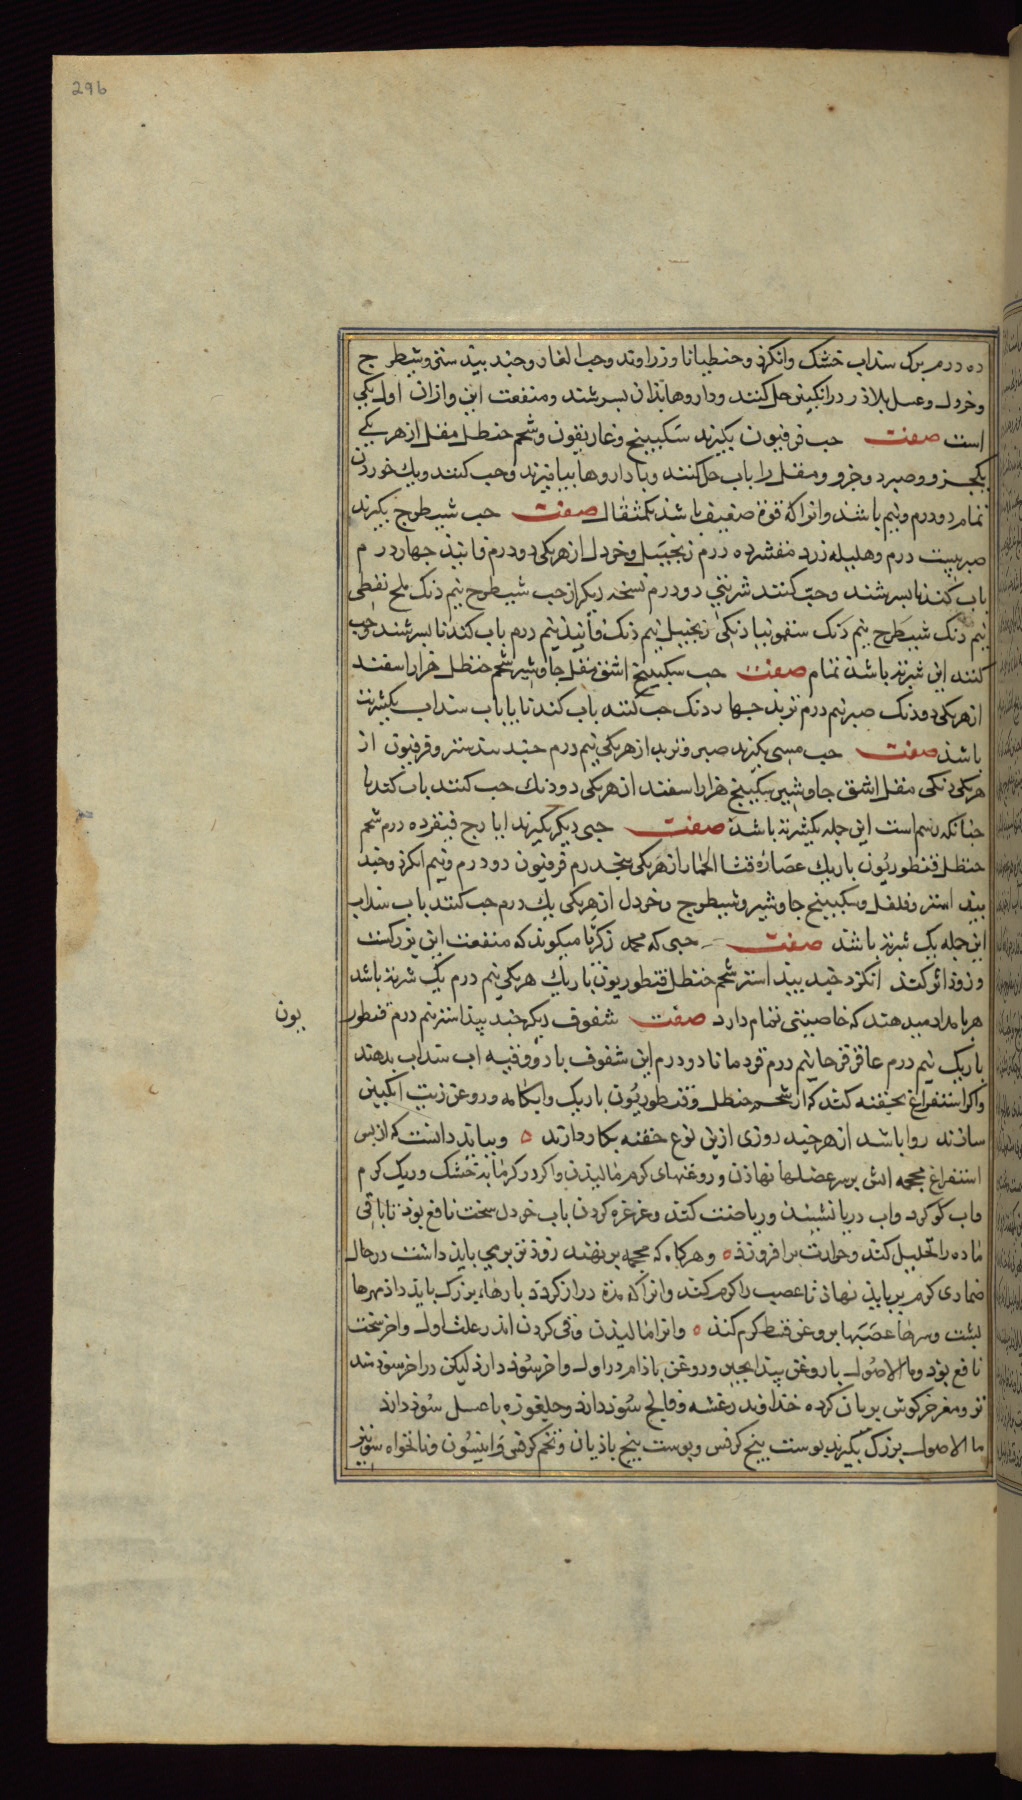 296
ده درم برک سنداب خشک وانکزد وجنطیانا وزراوند وحب الغار وجند بیدستر وشیطرج
وخردل وعسل بلاذر درانکبین حل کنند وداروها بذان بسرشند ومنفعت این وازان اول یکی
است صفت حب فرفیون بکیرند سکبینج وغاریقون وشحم حنظل مقل ازهر یکی
یکجزو وصبر دوجزو ومقل را باب حل کنند وبا داروها بیامیزند وحب کنند ویک خوردن
تمام دودرم ونیم باشد وانرا که قوة ضعیف باشد یکمثقال صفت حب شیطرج بکیرند
صبر بیست درم وهلیله زرد مقشر ده درم زنجبیل وخردل ازهریکی دودرم فانیذ چهار درم
باب کندنا بسرشند وحب کنند شربتی دودرم نسخه دیکر از حب شیطرج نیم دنک ملح نفطی
نیم دنک شیطرج نیم دنک سقمونیا دنکی زنجبیل نیم دنک فانیذ نیم درم باب کندنا بسرشند وحب
کنند این شربتی باشد تمام صفت حب سکبینج اشق مقل جاوشیر شحم حنظل هزار اسفند
ازهریکی دودنک صبر نیم درم تربد چهار دنک حب کنند باب کندنا یا باب سنداب یکشربت
باشد صفت حب بکیرند صبر وتربد ازهریکی نیم درم جند بیدستر وفرفیون از
هریکی دنکی مقل اشق جاوشیر سکبینج هزار اسفند ازهریکی دودنک حب کنند باب کندنا
جنانکه رسم است این جمله یکشربت باشد صفت حبی دیکر بکیرند ایارج فیقرا ده درم شحم
حنظل قنطوریون باریک عصاره قثا الحمار ازهریکی پنجدرم فرفیون دودرم ونیم انکزد وجند
بیدستر وفلفل وسکبینج جاوشیر وشیطرج وخردل ازهریکی یک درم حب کنند باب سنداب
این جمله یک شربت باشد صفت حبی که محمد زکریا میکوید که منفعت این بزرکست
وزود اثر کند انکزد جند بیدستر شحم حنظل قنطوریون باریک هریکی نیم درم یک شربت باشد
هربامداد میدهند که خاصیتی تمام دارد صفت شفوف دیکر جند بیدستر نیم درم قنطور
یون
باریک نیم درم عاقرقرحا نیم درم قردمانا دودرم این شفوف با دووقیه اب سنداب بدهند
واکر استفراغ بحقنه کنند که از شحم حنظل وقنطوریون باریک وابکامه وروغن زیت انکبین
سازند روا باشد ازهرچند روزی ازین نوع حقنه بکار دارند ه وبباید دانست که از پس
استفراغ محجمه اتش برسر عضلها نهاذن وروغنهای کرم مالیذن واکر در کرمابه خشک وریک کرم
واب کوکرد واب دریا نشیند وریاضت کند وغرغره کردن باب خردل سخت نافع بود تا باقی
ماده را تحلیل کند وحرارت برافروزد ه وهرکاه که محجمه برنهند زود تر بر می باید داشت درحال
ضمادی کرم بر باید نهاذ تا عصب را کرم کند وانرا که مدة دراز کردد بارهاء بزرک باید داد مهرها
پشت وسرها عصبها بروغن قسط کرم کند ه وانرا مالیدن وقی کردن اندر علت اول واخر سخت
نافع بود وما الاصول با روغن بیدانجیر وروغن باذام در اول واخر سود دارد لیکن در اخر سودمند
تر ومغز خرکوش بریان کرده خداوند رعشه وفالج سود دارد وجلغوزه با عسل سود دارد
ما الاصول بزرک بکیرند پوست بیخ کرفس وپوست بیخ باذیان وتخم کرفس وانیسون ونانخواه شونیز